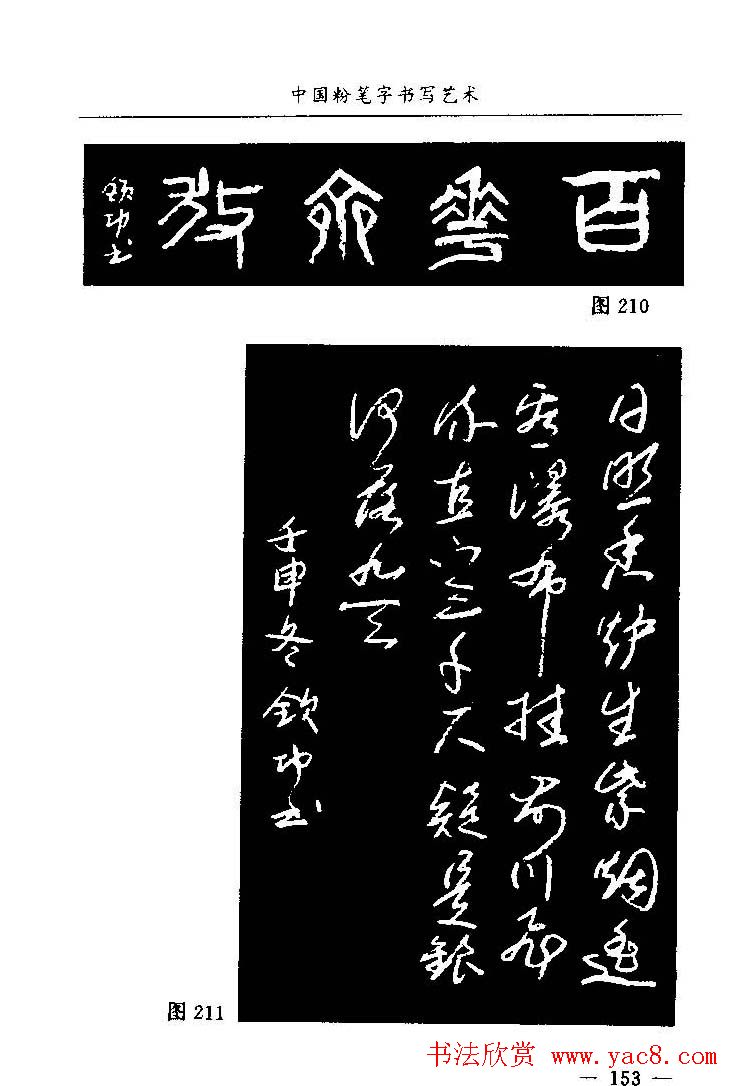 中国粉笔字书写艺术
百花齐放
欽功书
图 210
日照香炉生紫烟遥
看瀑布挂前川飞
流直下三千尺疑是銀
河落九天
壬申冬欽功书
图 211
书法欣赏 www.yac8.com
— 153 —